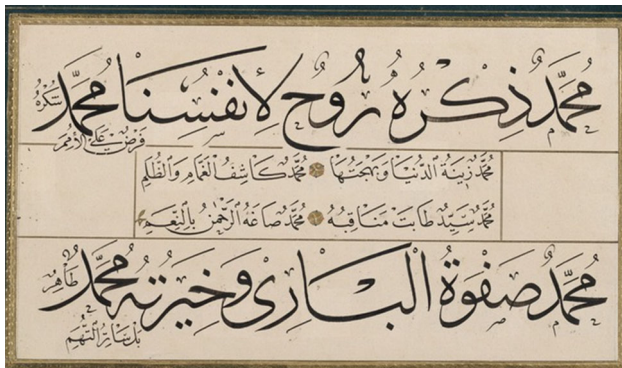 مُحَمَّدٌ ذِكْرُهُ رُوحٌ لِأَنْفُسِنَا مُحَمَّدٌ شُكْرُهُ فَرْضٌ عَلَى الْأُمَمِ
مُحَمَّدٌ زِينَةُ الدُّنْيَا وَبَهْجَتُهَا مُحَمَّدٌ كَاشِفُ الْغَمَامِ وَالظُّلَمِ
مُحَمَّدٌ سَيِّدٌ طَابَتْ مَنَاقِبُهُ مُحَمَّدٌ صَاغَهُ الرَّحْمٰنُ بِالنِّعَمِ
مُحَمَّدٌ صَفْوَةُ الْبَارِي وَخِيرَتُهُ مُحَمَّدٌ طَاهِرٌ سَائِرِ التُّهَمِ